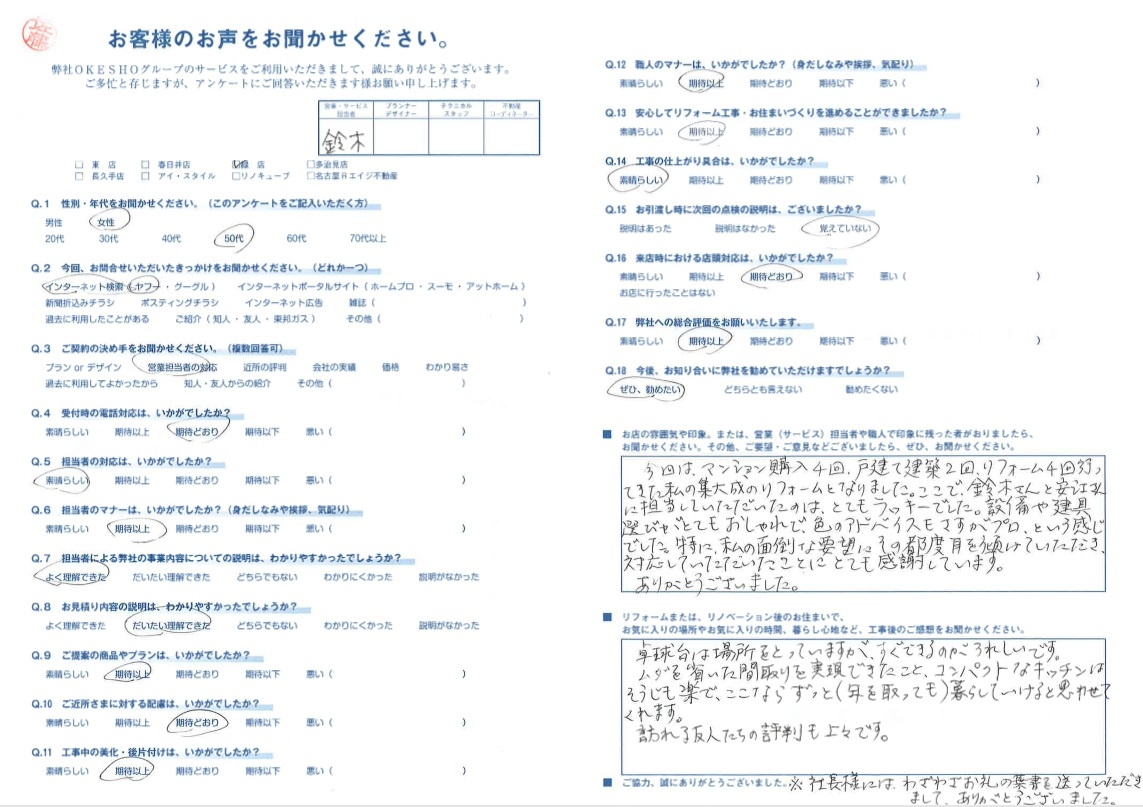 近藤
お客様のお声をお聞かせください。
弊社OKESHOグループのサービスをご利用いただきまして、誠にありがとうございます。
ご多忙と存じますが、アンケートにご回答いただきます様お願い申し上げます。
営業・サービス担当者 プランナーデザイナー テクニカルスタッフ 不動産コーディネーター
鈴木
□ 東 店 □ 春日井店 店 □多治見店
□ 長久手店 □ アイ・スタイル □リノキューブ □名古屋Rエイジ不動産
Q.1 性別・年代をお聞かせください。(このアンケートをご記入いただく方)
男性 女性
20代 30代 40代 50代 60代 70代以上
Q.2 今回、お問合せいただいたきっかけをお聞かせください。(どれか一つ)
インターネット検索(ヤフー・グーグル) インターネットポータルサイト(ホームプロ・スーモ・アットホーム)
新聞折込みチラシ ポスティングチラシ インターネット広告 雑誌( )
過去に利用したことがある ご紹介(知人・友人・東邦ガス) その他( )
Q.3 ご契約の決め手をお聞かせください。(複数回答可)
プラン or デザイン 営業担当者の対応 近所の評判 会社の実績 価格 わかり易さ
過去に利用してよかったから 知人・友人からの紹介 その他( )
Q.4 受付時の電話対応は、いかがでしたか?
素晴らしい 期待以上 期待どおり 期待以下 悪い( )
Q.5 担当者の対応は、いかがでしたか?
素晴らしい 期待以上 期待どおり 期待以下 悪い( )
Q.6 担当者のマナーは、いかがでしたか?(身だしなみや挨拶、気配り)
素晴らしい 期待以上 期待どおり 期待以下 悪い( )
Q.7 担当者による弊社の事業内容についての説明は、わかりやすかったでしょうか?
よく理解できた だいたい理解できた どちらでもない わかりにくかった 説明がなかった
Q.8 お見積り内容の説明は、わかりやすかったでしょうか?
よく理解できた だいたい理解できた どちらでもない わかりにくかった 説明がなかった
Q.9 ご提案の商品やプランは、いかがでしたか?
素晴らしい 期待以上 期待どおり 期待以下 悪い( )
Q.10 ご近所さまに対する配慮は、いかがでしたか?
素晴らしい 期待以上 期待どおり 期待以下 悪い( )
Q.11 工事中の美化・後片付けは、いかがでしたか?
素晴らしい 期待以上 期待どおり 期待以下 悪い( )
Q.12 職人のマナーは、いかがでしたか?(身だしなみや挨拶、気配り)
素晴らしい 期待以上 期待どおり 期待以下 悪い( )
Q.13 安心してリフォーム工事・お住まいづくりを進めることができましたか?
素晴らしい 期待以上 期待どおり 期待以下 悪い( )
Q.14 工事の仕上がり具合は、いかがでしたか?
素晴らしい 期待以上 期待どおり 期待以下 悪い( )
Q.15 お引渡し時に次回の点検の説明は、ございましたか?
説明はあった 説明はなかった 覚えていない
Q.16 来店時における店頭対応は、いかがでしたか?
素晴らしい 期待以上 期待どおり 期待以下 悪い( )
お店に行ったことはない
Q.17 弊社への総合評価をお願いいたします。
素晴らしい 期待以上 期待どおり 期待以下 悪い( )
Q.18 今後、お知り合いに弊社を勧めていただけますでしょうか?
ぜひ、勧めたい どちらとも言えない 勧めたくない
■ お店の雰囲気や印象。または、営業(サービス)担当者や職人で印象に残った者がおりましたら、
お聞かせください。その他、ご要望・ご意見などございましたら、ぜひ、お聞かせください。
今回は、マンション購入4回、戸建て建築2回、リフォーム4回行っ
てきた私の集大成のリフォームとなりました。ここで、鈴木さんと安江さん
に担当していただいたのは、とてもラッキーでした。設備や建具
選びがとてもおしゃれで、色のアドバイスもさすがプロ、という感じ
でした。特に、私の面倒な要望にその都度耳を傾けていただき、
対応していただいたことにとても感謝しています。
ありがとうございました。
■ リフォームまたは、リノベーション後のお住まいで、
お気に入りの場所やお気に入りの時間、暮らし心地など、工事後のご感想をお聞かせください。
卓球台は場所をとっていますが、すぐできるのがうれしいです。
ムダを省いた間取りを実現できたこと、コンパクトなキッチンは
そうじも楽で、ここならずっと(年を取っても)暮らしていけると思わせて
くれます。
訪れる友人たちの評判も上々です。
■ ご協力、誠にありがとうございました。※社長様には、わざわざお礼の葉書を送っていただき
まして、ありがとうございました。